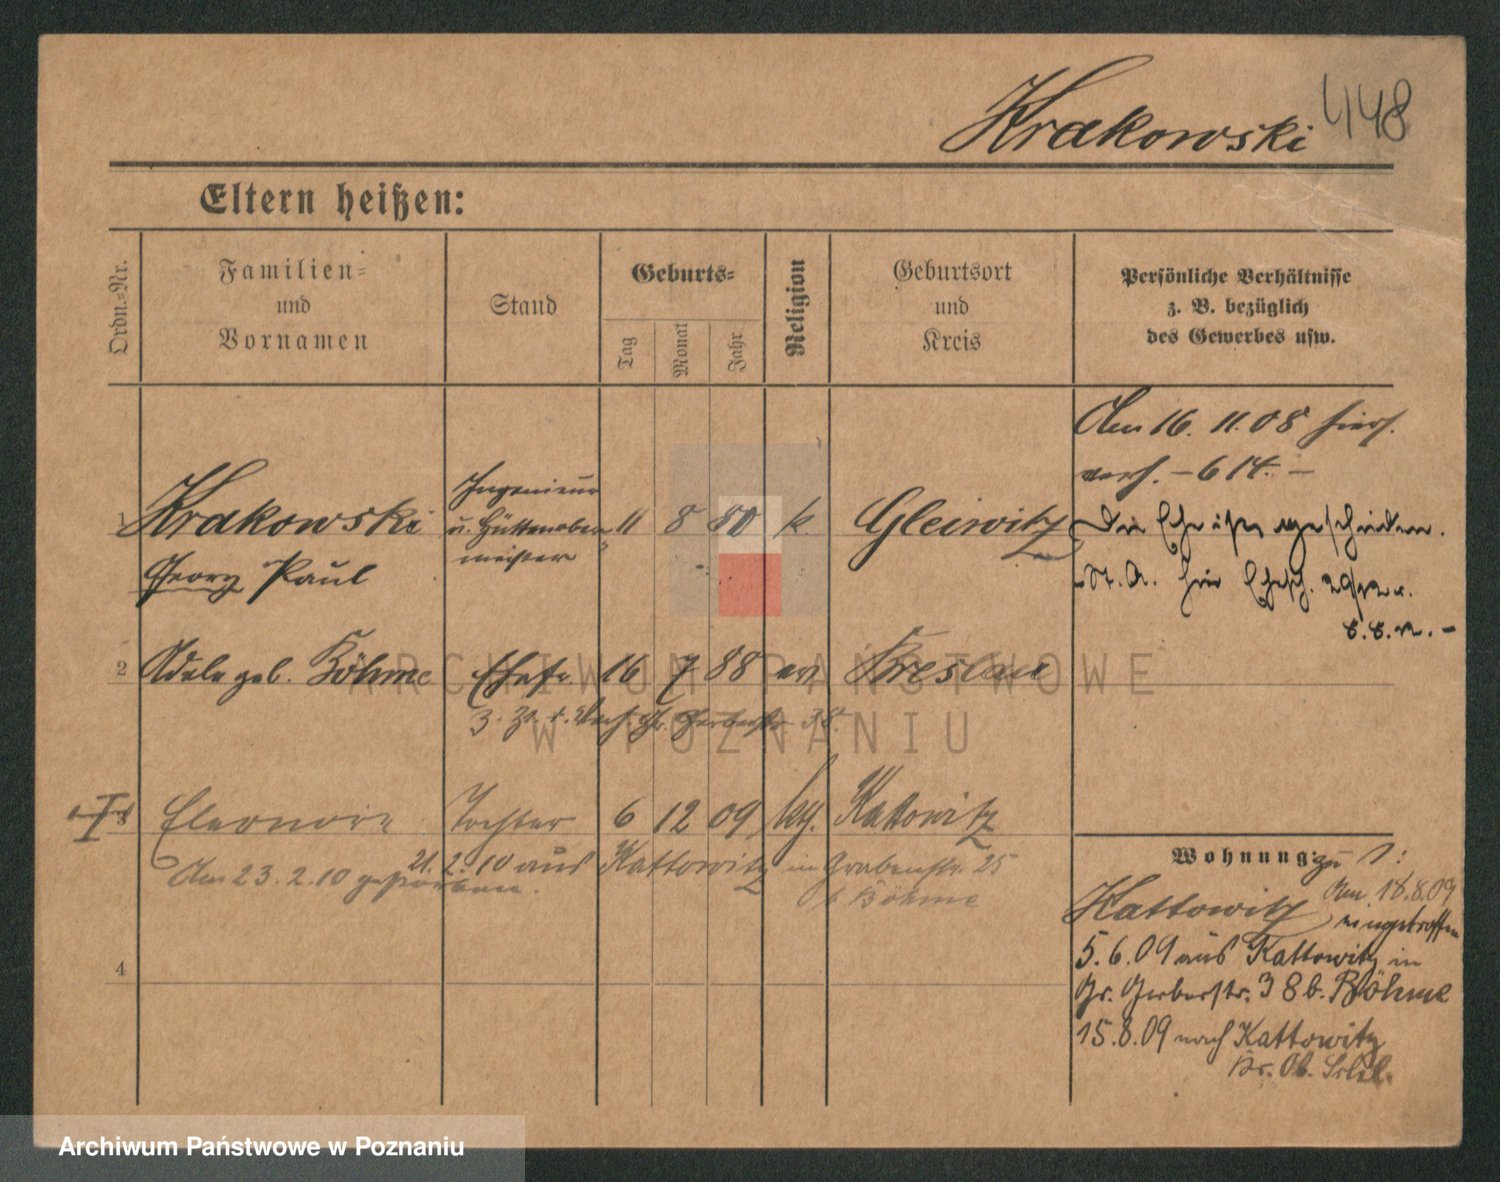 Krakowski 448
Eltern heißen:
Ordn.-Nr.
Familien-
und
Vornamen
Stand
Geburts-
Tag
Monat
Jahr
Religion
Geburtsort
und
Kreis
Persönliche Verhältnisse
z. B. bezüglich
des Gewerbes usw.
Am 16. 11. 08 hier
- 614. -
1 Krakowski
Georg Paul
Ingenieur
u. Hüttenober-
meister
11 8 80 k. Gleiwitz
Die Ehe ist geschieden.
St. A. hier
2 Adele geb. Böhme Ehefr. 16 7 88 ev Breslau
z. Zt. Gr. Gerberstr. 38.
3 Eleonore Tochter 6 12 09 kth. Kattowitz
21. 2. 10 aus Kattowitz in Grabenstr. 25
b Böhme
Am 23. 2. 10 gestorben.
4
Wohnung: zu 1:
Kattowitz Am 18.8.09
eingetroffen
5. 6. 09 aus Kattowitz in
Gr. Gerberstr. 38 b. Böhme
15. 8. 09 nach Kattowitz
Kr. Ob. Schl.
ARCHIWUM PAŃSTWOWE
W POZNANIU
Archiwum Państwowe w Poznaniu